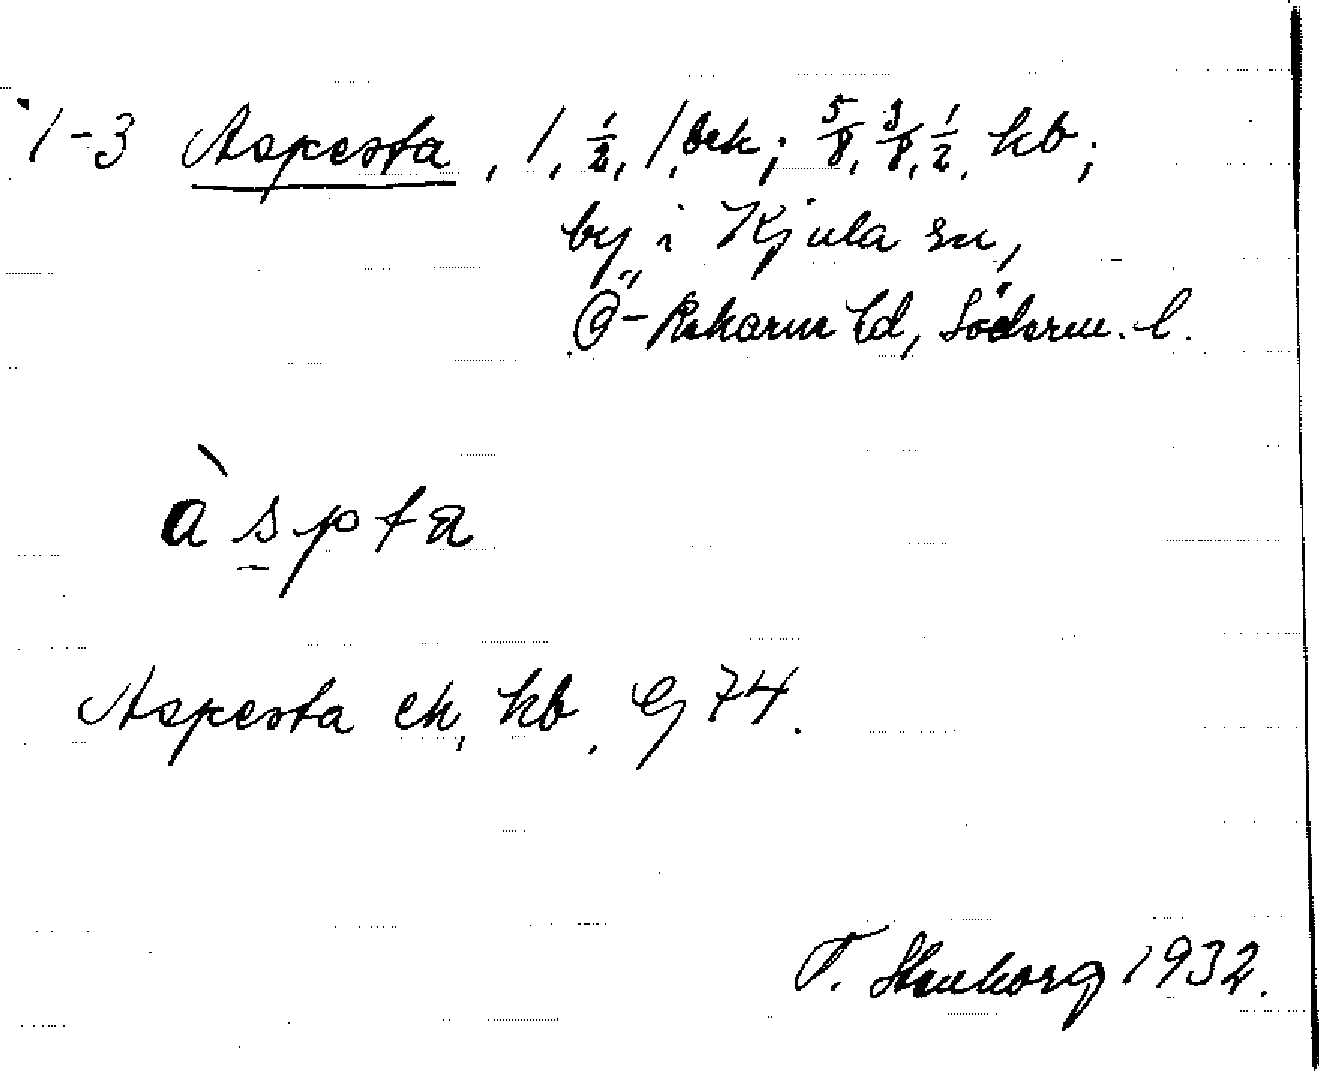 1-3 Aspesta, 1, 1/2, 1, ek; 5/8, 3/8, 1/2, kb;
by i Kjula sn,
Ö-Rekarne hd, Söderm. l.
àspta
Aspesta ek, kb, Gj 74.
T. Stenborg 1932.